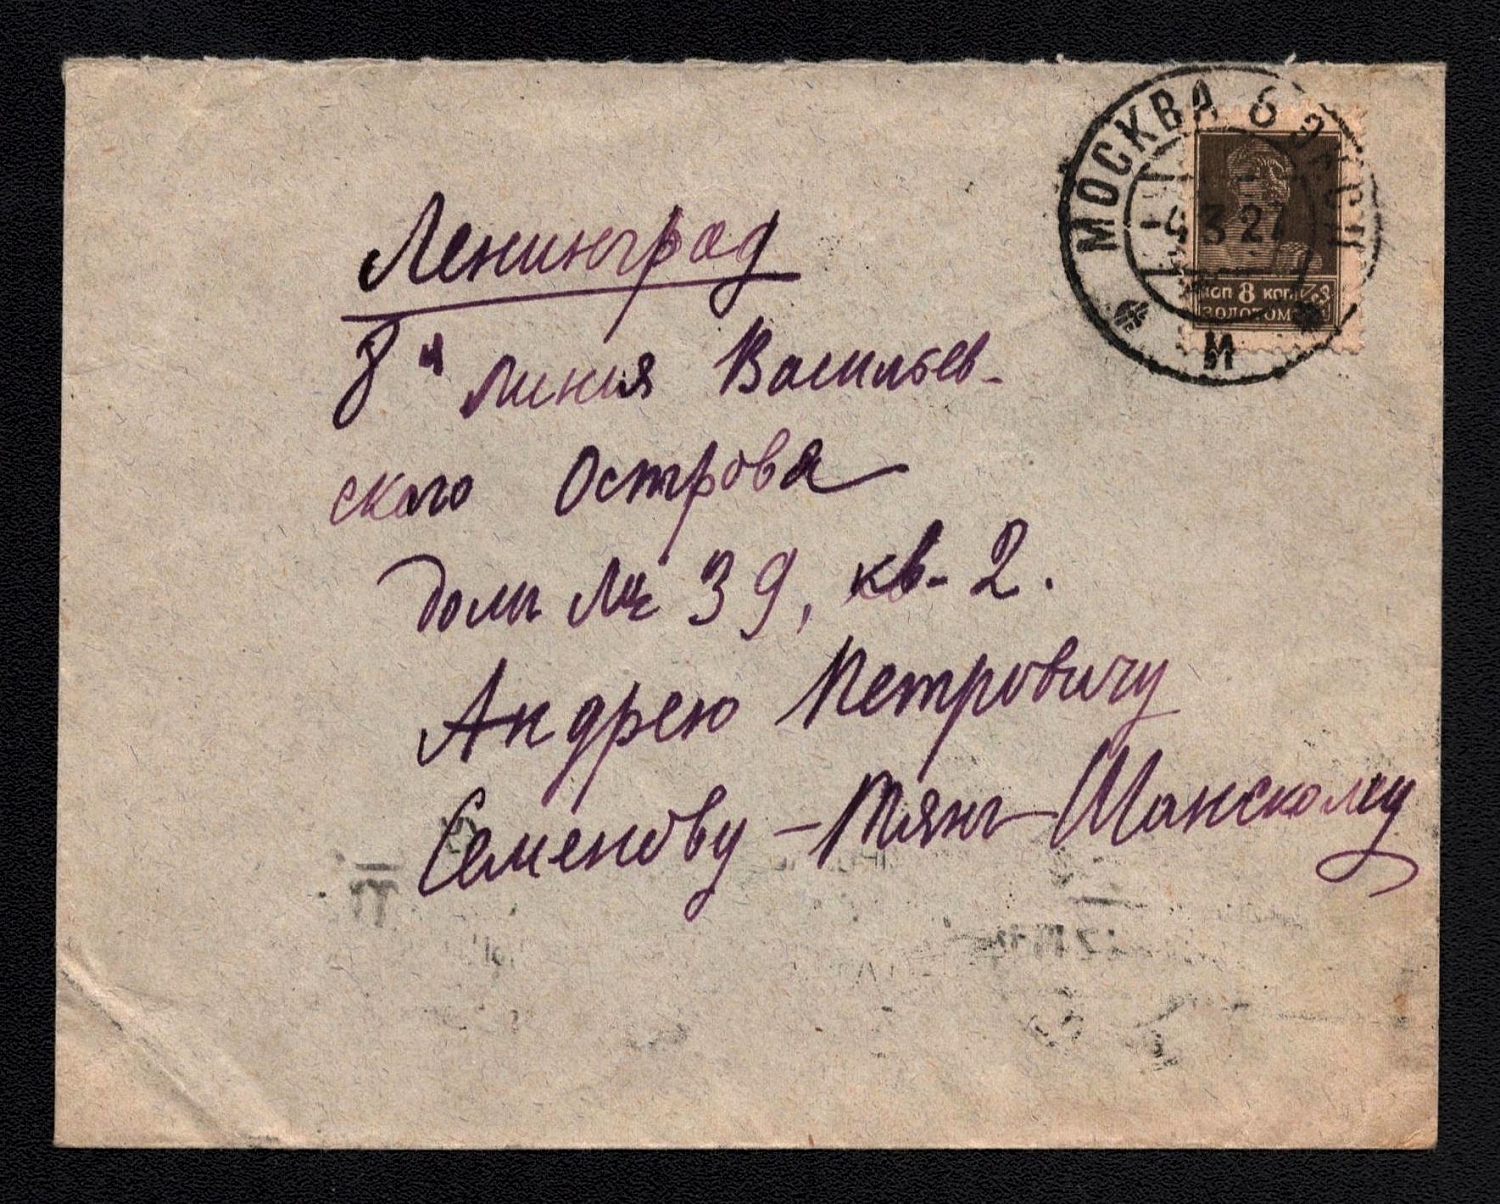 МОСКВА 6 ЭКСП
3 27
КОП 8 КОП
ЗОЛОТОМ
И
Ленинград
8ая линия Васильев-
ского Острова
домъ № 39, кв. 2.
Андрею Петровичу
Семенову-Тянъ-Шанскому